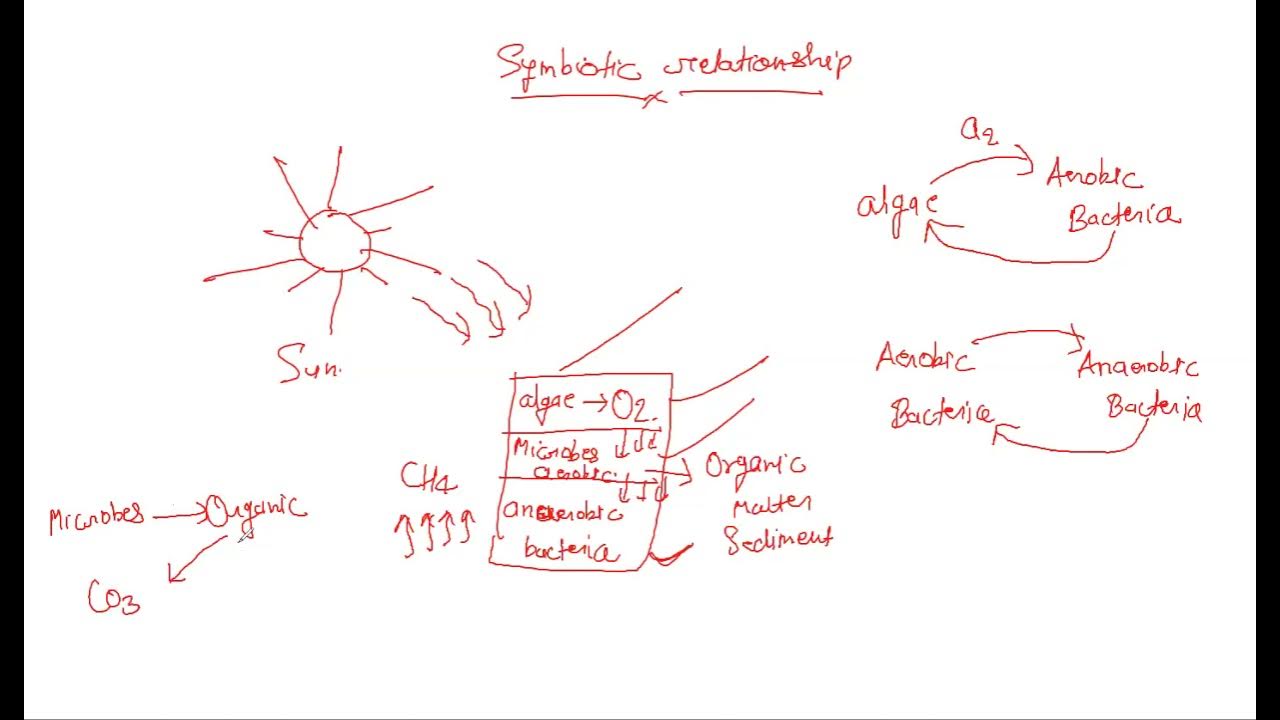 Symbiotic relationship
a2
algae
Aerobic
Bacteria
Sun.
Aerobic
Bacteria
Anaerobic
Bacteria
algae → O2.
Microbes
aerobic.
anaerobic
bacteria
Organic
Matter
Sediment
CH4
Microbes → Organic
CO3